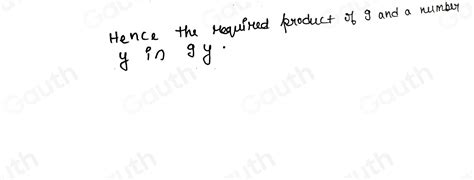 Hence the required product of 9 and a number
y is 9y.
Gauth
Gauth
Gauth
Gauth